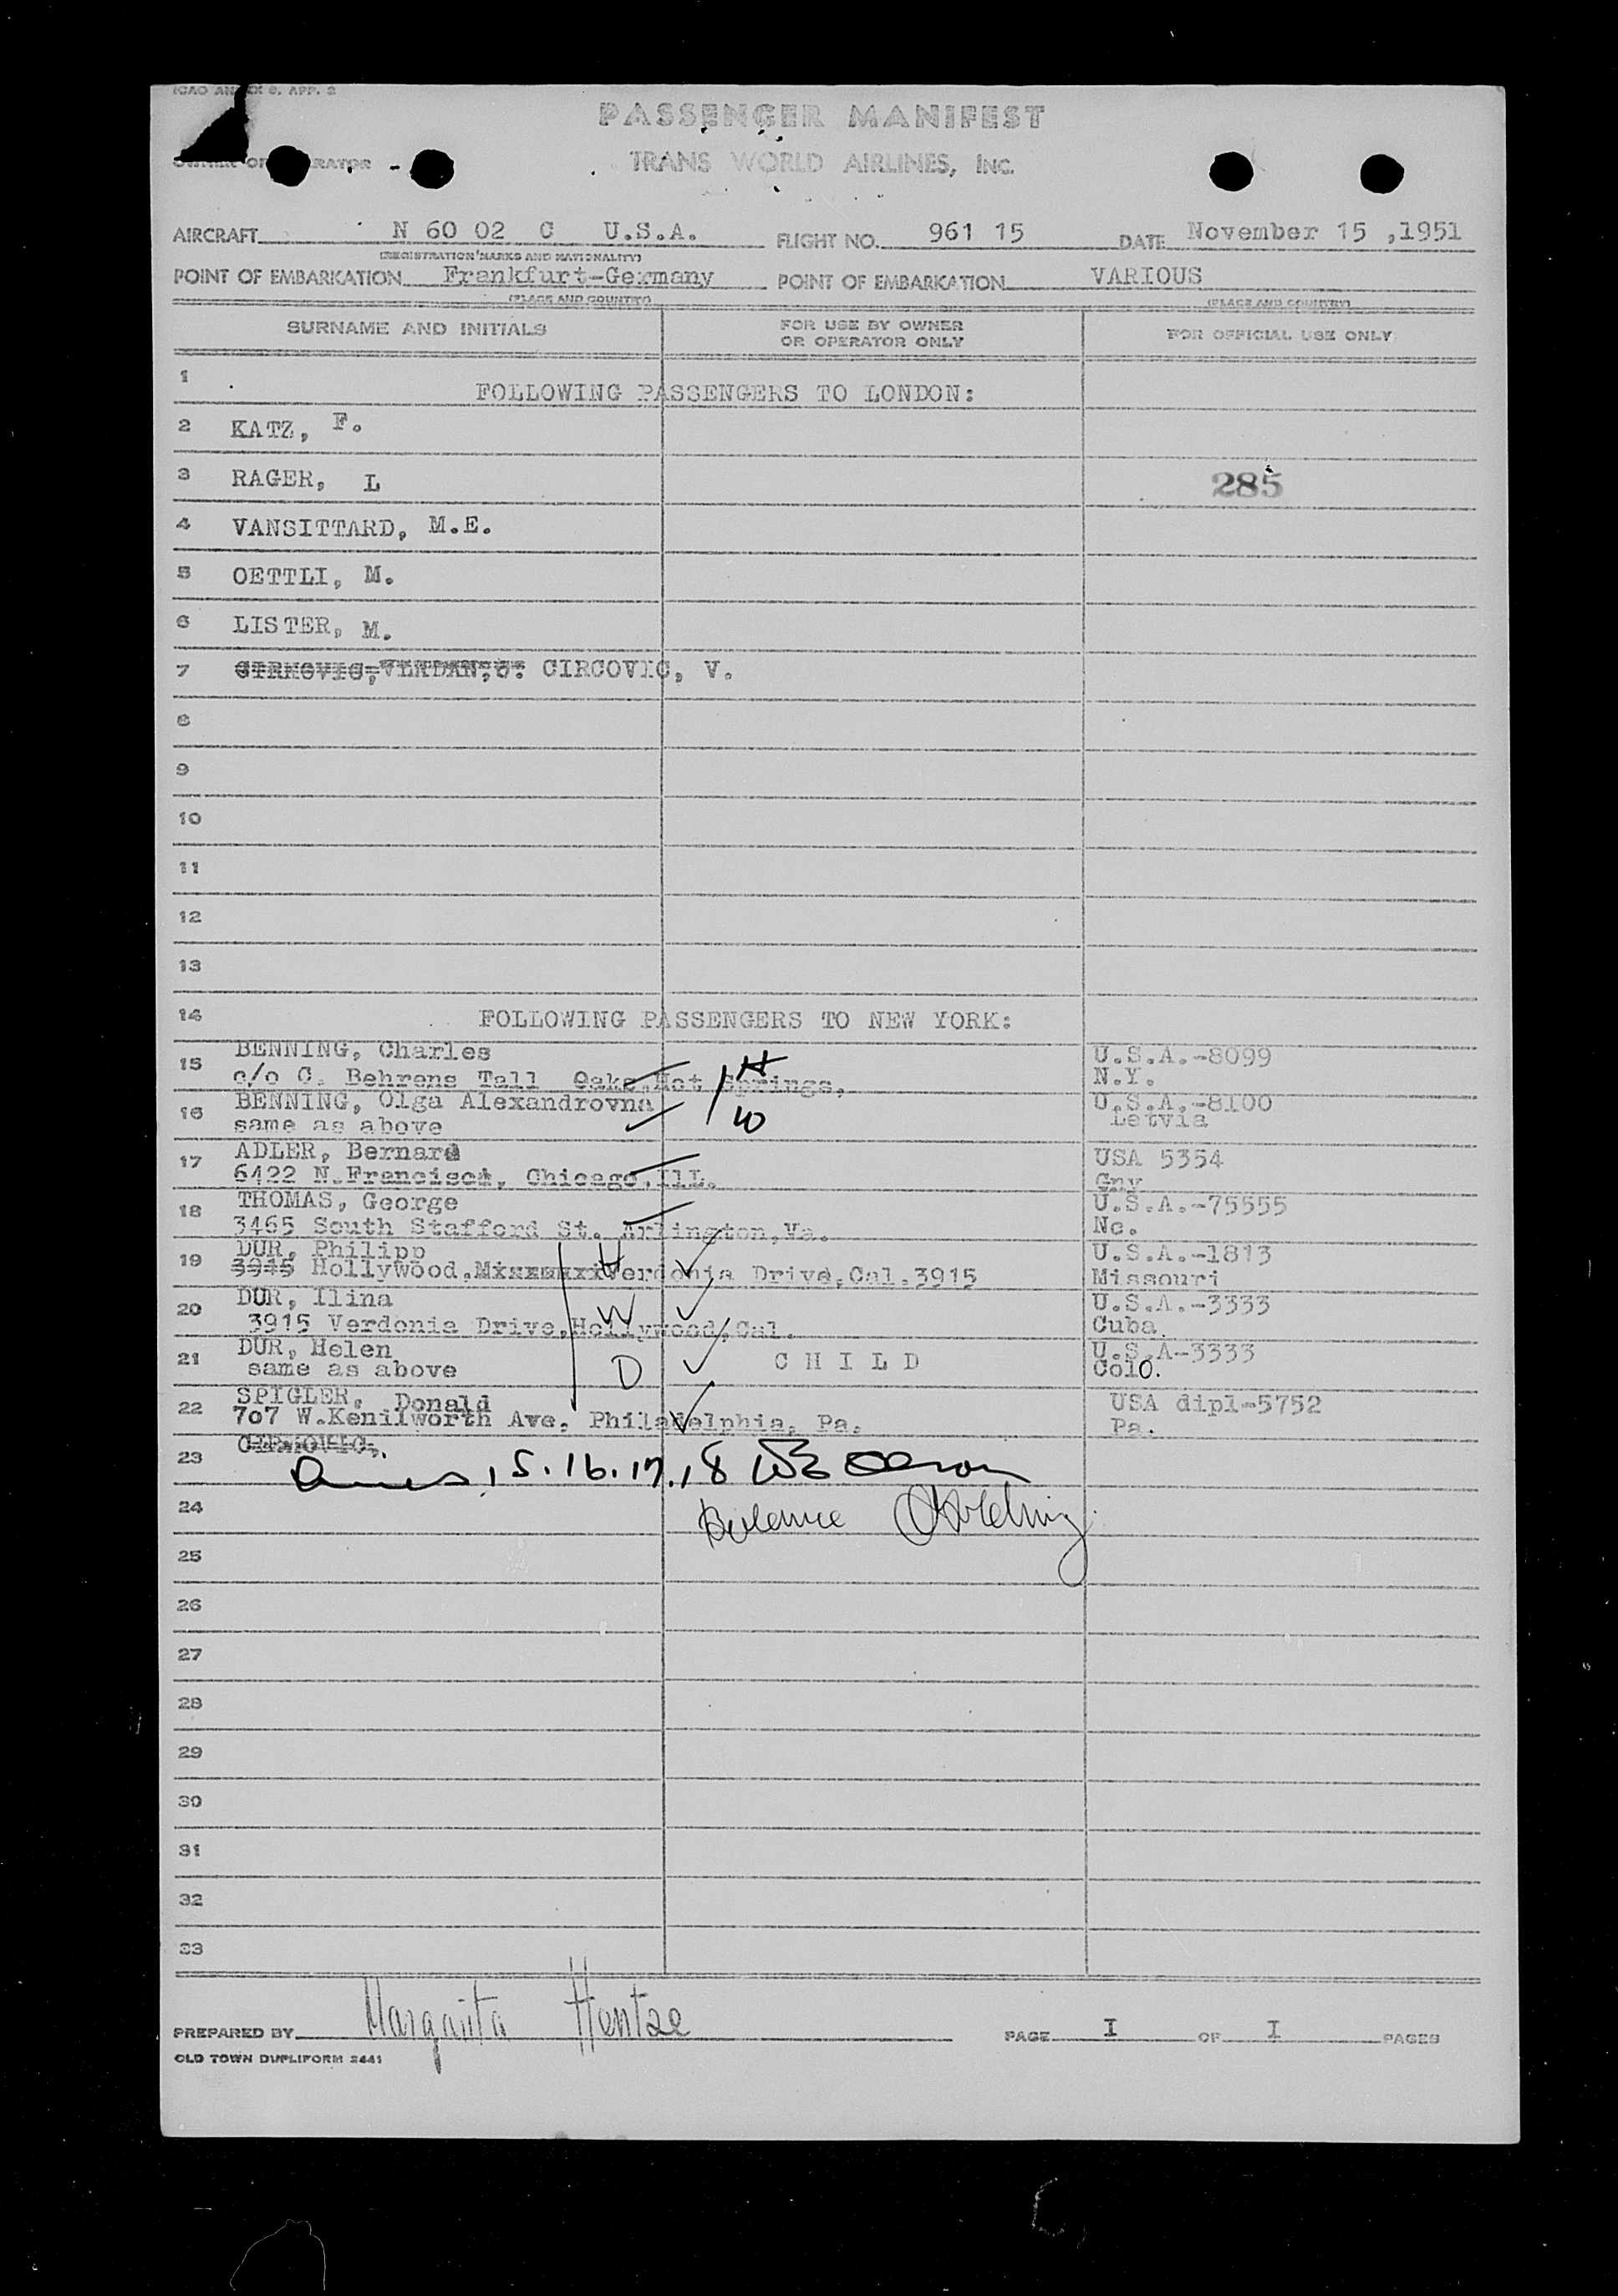 ICAO ANNEX 9, APP. 2
PASSENGER MANIFEST
OWNER OR OPERATOR
TRANS WORLD AIRLINES, INC.
AIRCRAFT N 60 02 C U.S.A. FLIGHT NO. 961 15 DATE November 15 ,1951
(REGISTRATION MARKS AND NATIONALITY)
POINT OF EMBARKATION Frankfurt-Germany POINT OF EMBARKATION VARIOUS
(PLACE AND COUNTRY) (PLACE AND COUNTRY)
SURNAME AND INITIALS FOR USE BY OWNER OR OPERATOR ONLY FOR OFFICIAL USE ONLY
1 FOLLOWING PASSENGERS TO LONDON:
2 KATZ, F.
3 RAGER, L 285
4 VANSITTARD, M.E.
5 OETTLI, M.
6 LISTER, M.
7 CIRCOVIC, V.
8
9
10
11
12
13
14 FOLLOWING PASSENGERS TO NEW YORK:
15 BENNING, Charles U.S.A.-8099
c/o C. Behrens Tall Oaks,Hot Springs, H N.Y.
16 BENNING, Olga Alexandrovna U.S.A.-8100
same as above W Letvia
17 ADLER, Bernard USA 5354
6422 N.Francisct, Chicago,Ill. Gny
18 THOMAS, George U.S.A.-75555
3465 South Stafford St. Arlington,Va. Nc.
19 DUR, Philipp H U.S.A.-1813
3945 Hollywood, Verdonia Drive,Cal.3915 Missouri
20 DUR, Ilina W U.S.A.-3333
3915 Verdonia Drive,Hollywood,Cal. Cuba
21 DUR, Helen U.S.A-3333
same as above D CHILD Colo.
22 SPIGLER, Donald USA dipl-5752
707 W.Kenilworth Ave, Philadelphia, Pa. Pa.
23 15.16.17.18
24 Balance
25
26
27
28
29
30
31
32
33
PREPARED BY Margarita Hentze PAGE I OF I PAGES
OLD TOWN DUPLIFORM 2441